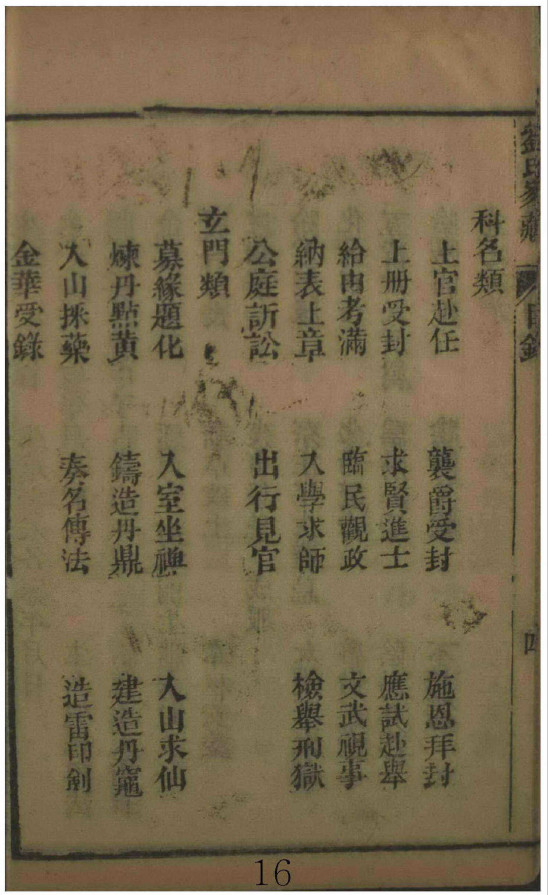 劉氏家藏 目錄 四
科名類
上官赴任 襲爵受封 施恩拜封
上册受封 求賢進士 應試赴舉
給由考滿 臨民觀政 文武視事
納表上章 入學求師 檢舉刑獄
公庭訴訟 出行見官
玄門類
募緣題化 入室坐禪 入山求仙
煉丹點黃 鑄造丹鼎 建造丹竈
入山採藥 奏名傳法 造雷印劍
金華受籙
16